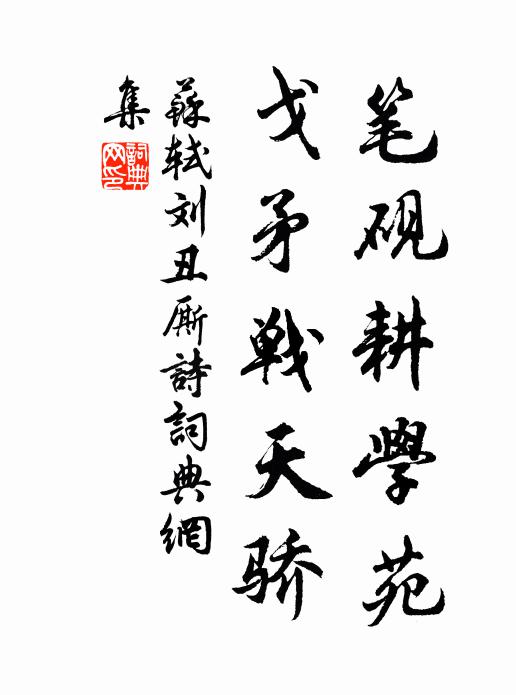 笔砚耕學苑
戈矛戦天骄
蘇轼刘丑厮詩詞典網
集
詞典網印